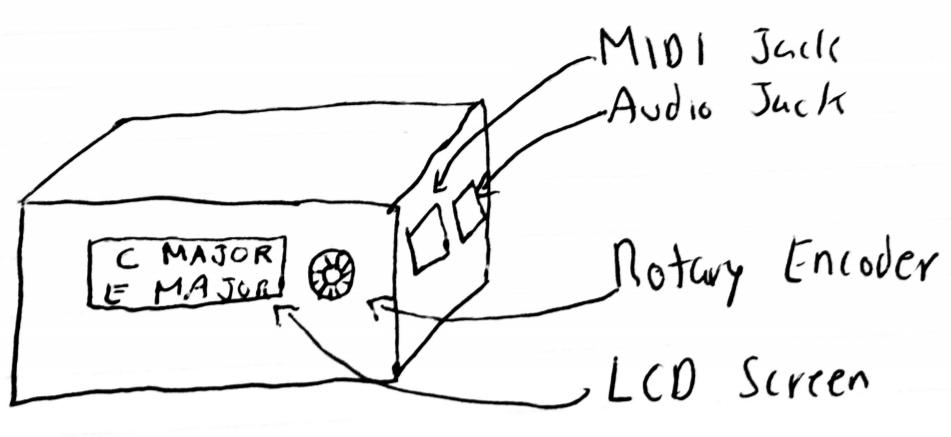 MIDI Jack
Audio Jack
C MAJOR
E MAJOR
Rotary Encoder
LCD Screen